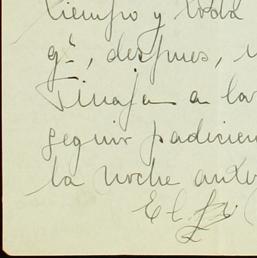 tiempo y toda
qᵉ, después,
Tinaja a la
seguir padicien
la noche ante
El